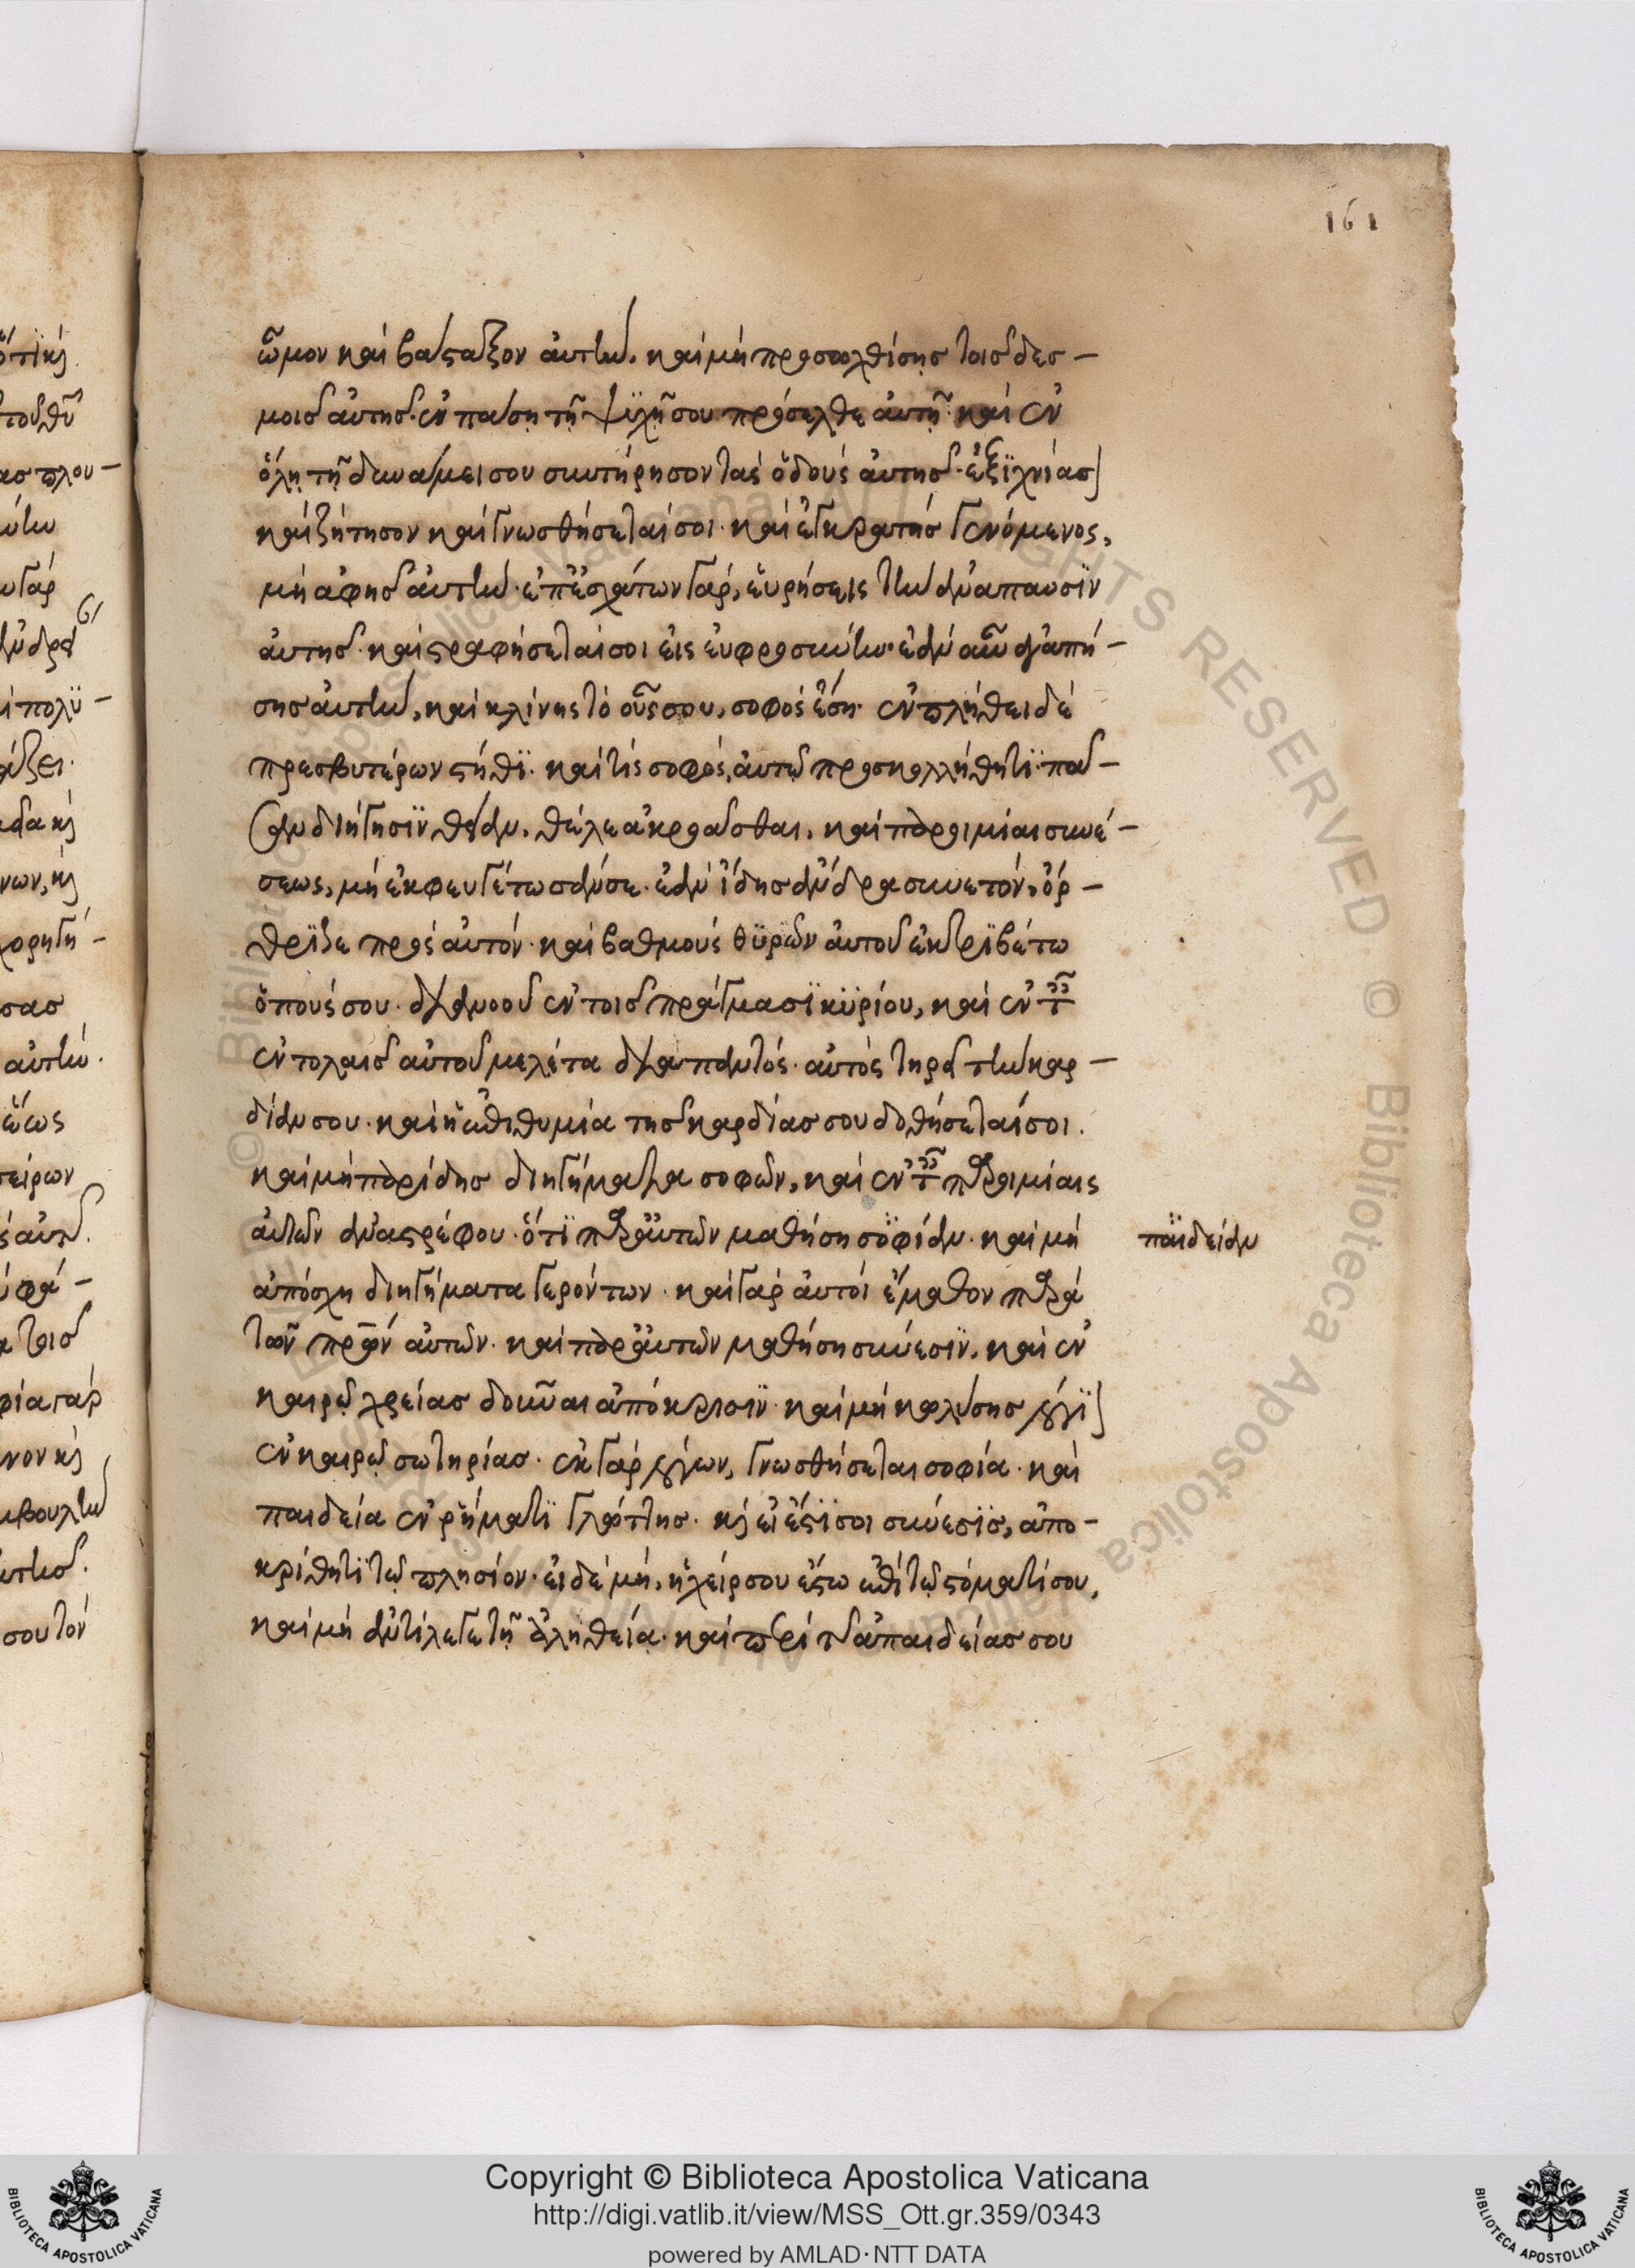 161
ὦμον καὶ βάσταξον αὐτὴν. καὶ μὴ προσοχθίσης τοῖς δεσ-
μοῖς αὐτῆς. ἐν πάση τῆ ψϋχῆ σου πρόσελθε αὐτῆ. καὶ ἐν
ὅλη τῆ δυνάμει σου συντήρησον τὰς ὁδοὺς αὐτῆς. ἐξϊχνίασ]
καὶ ζήτησον καὶ γνωσθήσεταί σοι. καὶ ἐγκρατὴς γενόμενος,
μὴ ἀφῆς αὐτὴν. ἐπ ἐσχάτων γὰρ, εὑρήσεις τὴν ἀνάπαυσϊν
αὐτῆς. καὶ στραφήσεταί σοι εἰς εὐφροσύνην. ἐὰν οὖν ἀγαπή-
σης αὐτὴν, καὶ κλίνης τὸ οὖς σου, σοφὸς ἔση. ἐν πλήθει δὲ
πρεσβυτέρων στῆθϊ. καὶ τίς σοφός, αὐτῶ προσκολλήθητϊ. πᾶ-
σαν διήγησϊν θείαν, θέλε ἀκροᾶσθαι. καὶ παροιμίαι συνέ-
σεως, μὴ ἐκφευγέτωσάν σε. ἐὰν ἴδης ἄνδρα συνετὸν, ὄρ-
θρϊζε πρὸς αὐτόν. καὶ βαθμοὺς θϋρῶν αὐτοῦ ἐκτρϊβέτω
ὁ πούς σου. διανοοῦ ἐν τοῖς πράγμασϊ κϋρίου, καὶ ἐν τ
ἐντολαῖς αὐτοῦ μελέτα διαπαντός. αὐτὸς στηρεῖ τὴν καρ-
δίαν σου. καὶ ἡ ἐπιθυμία τῆς καρδίας σου δοθήσεταί σοι.
καὶ μὴ παρίδης διηγήματα σοφῶν, καὶ ἐν τ παροιμίαις
αὐτῶν ἀναστρέφου. ὅτϊ παρ αὐτῶν μαθήση σοφίαν. καὶ μὴ
παιδείαν
ἀπόσχη διηγήματα γερόντων. καὶ γὰρ αὐτοὶ ἔμαθον παρὰ
τῶν πρων αὐτῶν. καὶ παρ αὐτῶν μαθήση σύνεσϊν. καὶ ἐν
καιρῶ χρείας δοῦναι ἀπόκρισϊν. καὶ μὴ κωλύσης λόγϊ]
ἐν καιρῶ σωτηρίας. ἐκ γὰρ λόγων, γνωσθήσεται σοφία. καὶ
παιδεία ἐν ῥήματϊ γλώττης. κὶ εἰ ἔστϊ σοι σύνεσϊς, ἀπο-
κρίθητϊ τῶ πλησίον. εἰ δὲ μή, ἡ χείρ σου ἔστω ἐπὶ τῶ στόματί σου,
καὶ μὴ ἀντίλεγε τῆ ἀληθεία. καὶ περὶ τῆς ἀπαιδείας σου
© Biblioteca Apostolica Vaticana ALL RIGHTS RESERVED
Copyright © Biblioteca Apostolica Vaticana
http://digi.vatlib.it/view/MSS_Ott.gr.359/0343
powered by AMLAD·NTT DATA
BIBLIOTECA APOSTOLICA VATICANA
BIBLIOTECA APOSTOLICA VATICANA